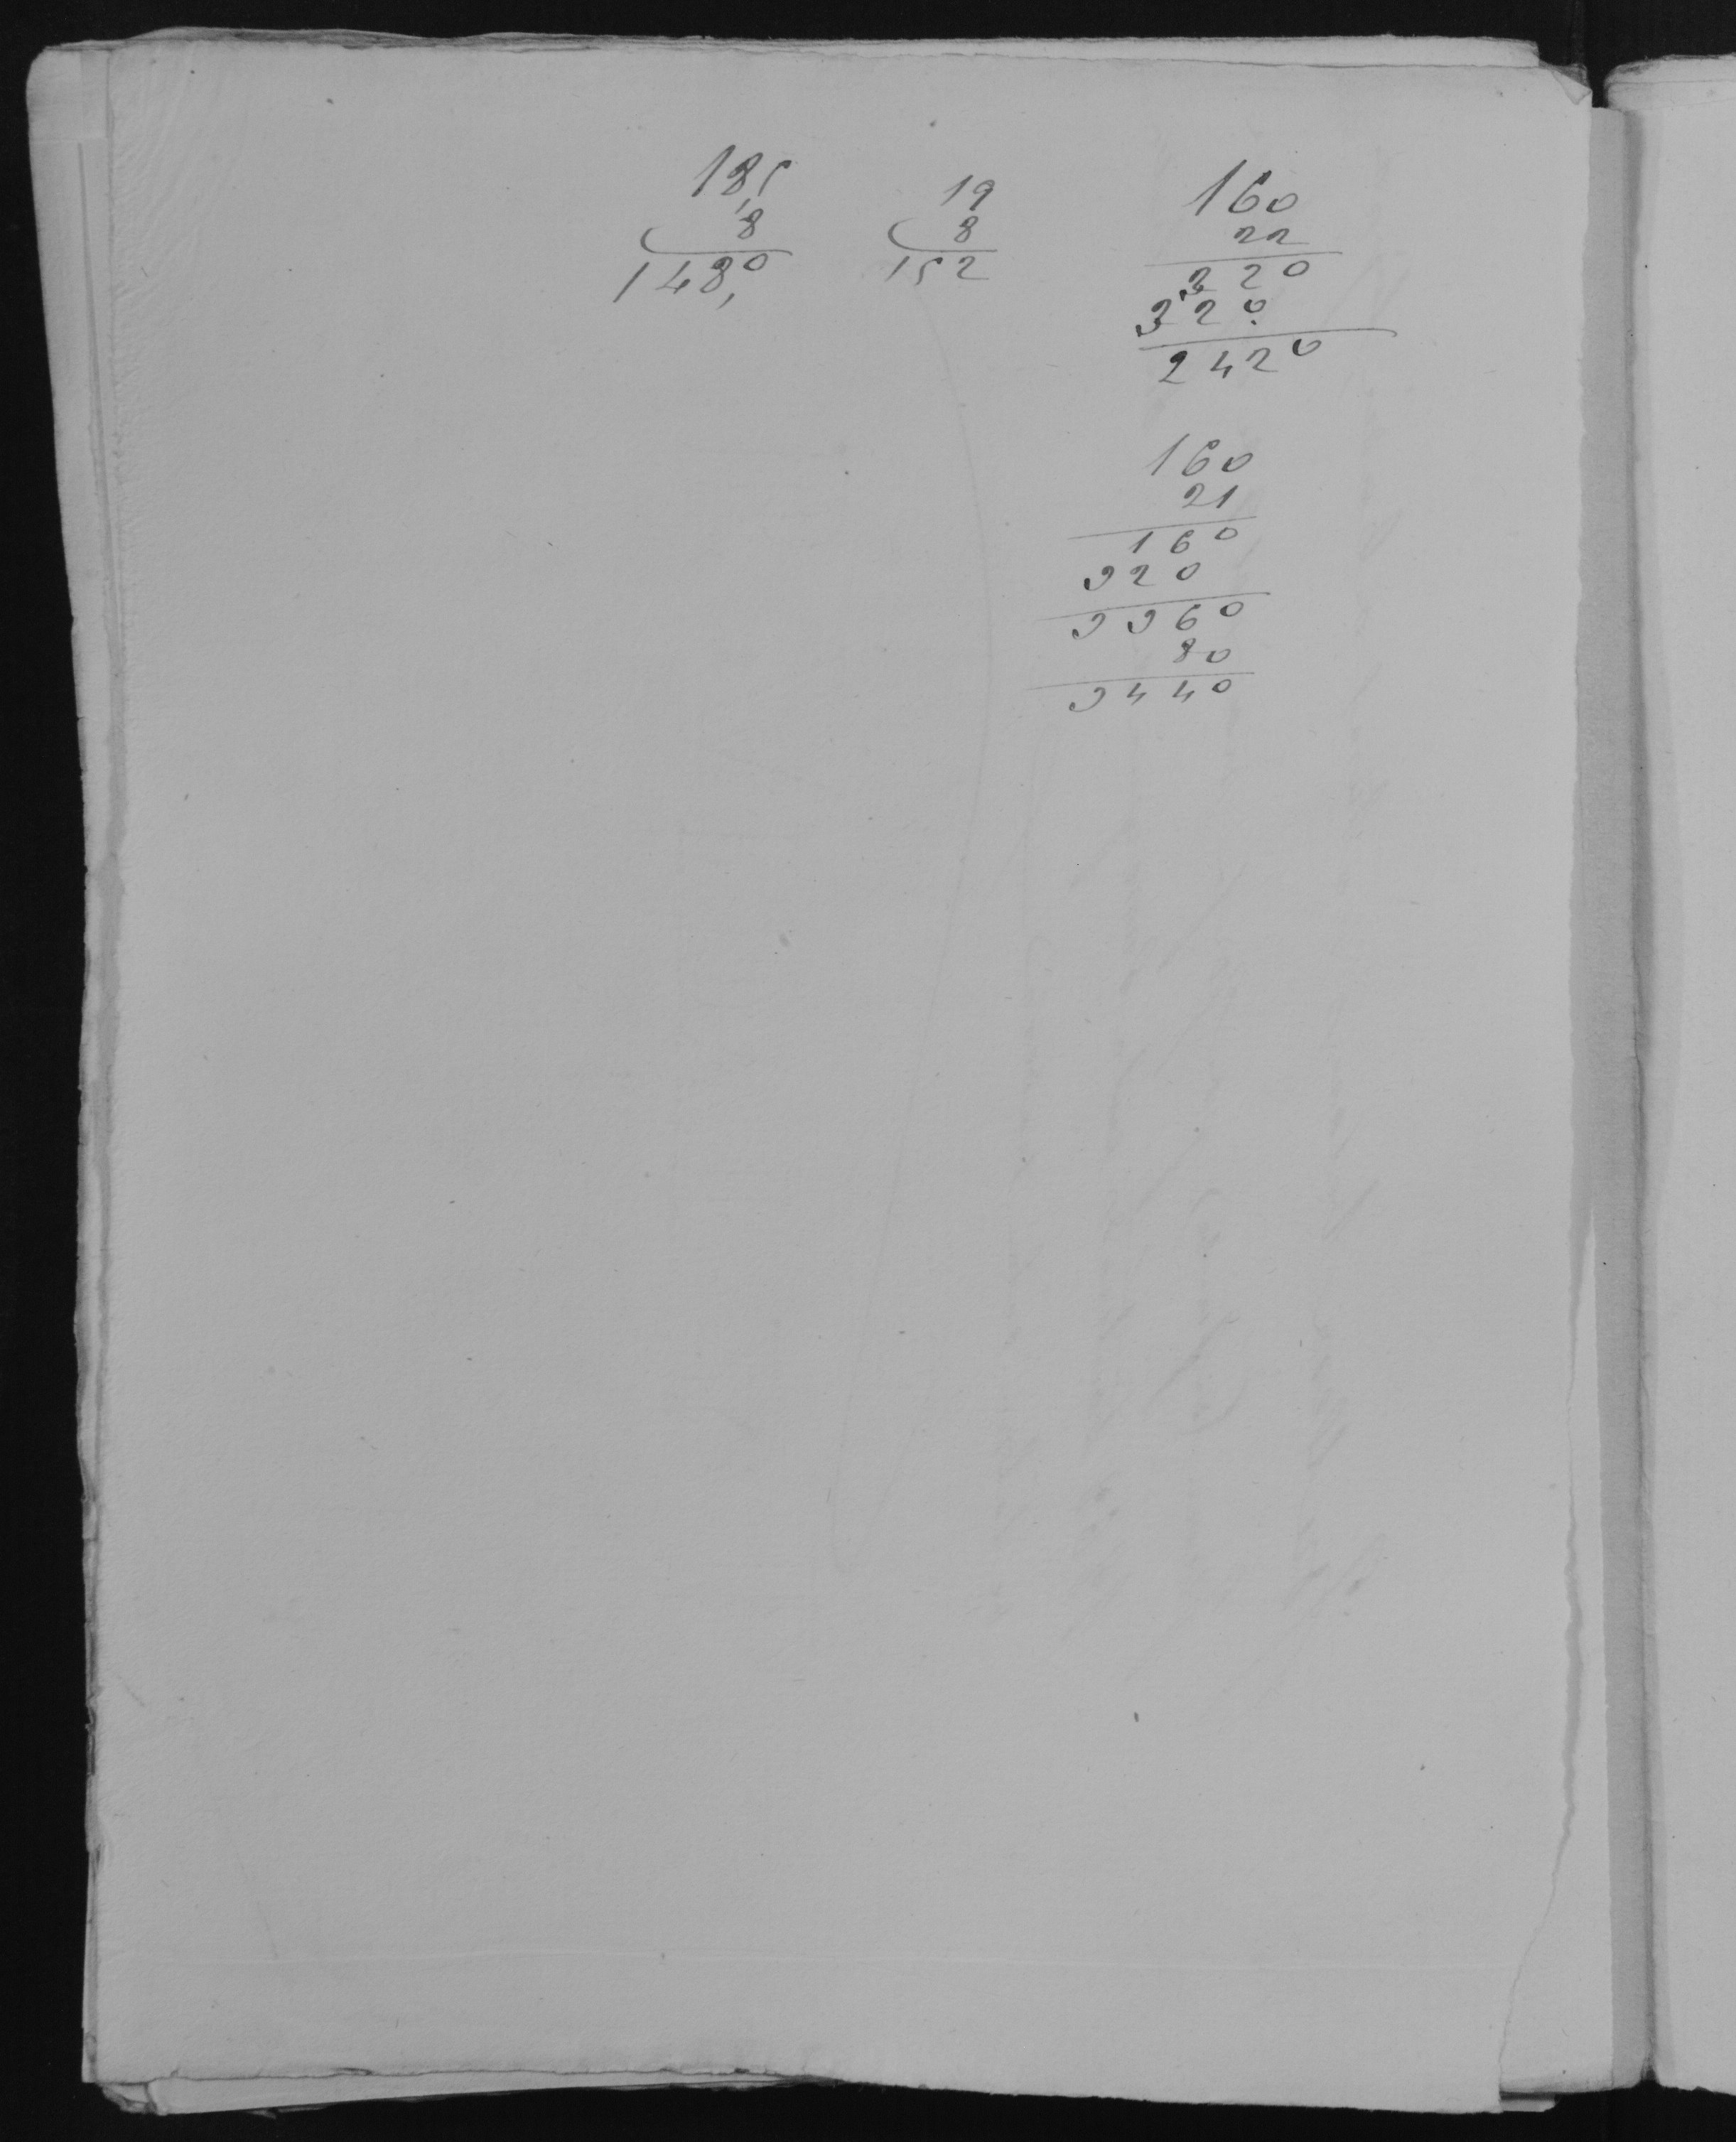 18,5
8
148,0
19
8
152
160
22
320
320.
2420
160
21
160
320
3360
80
3440